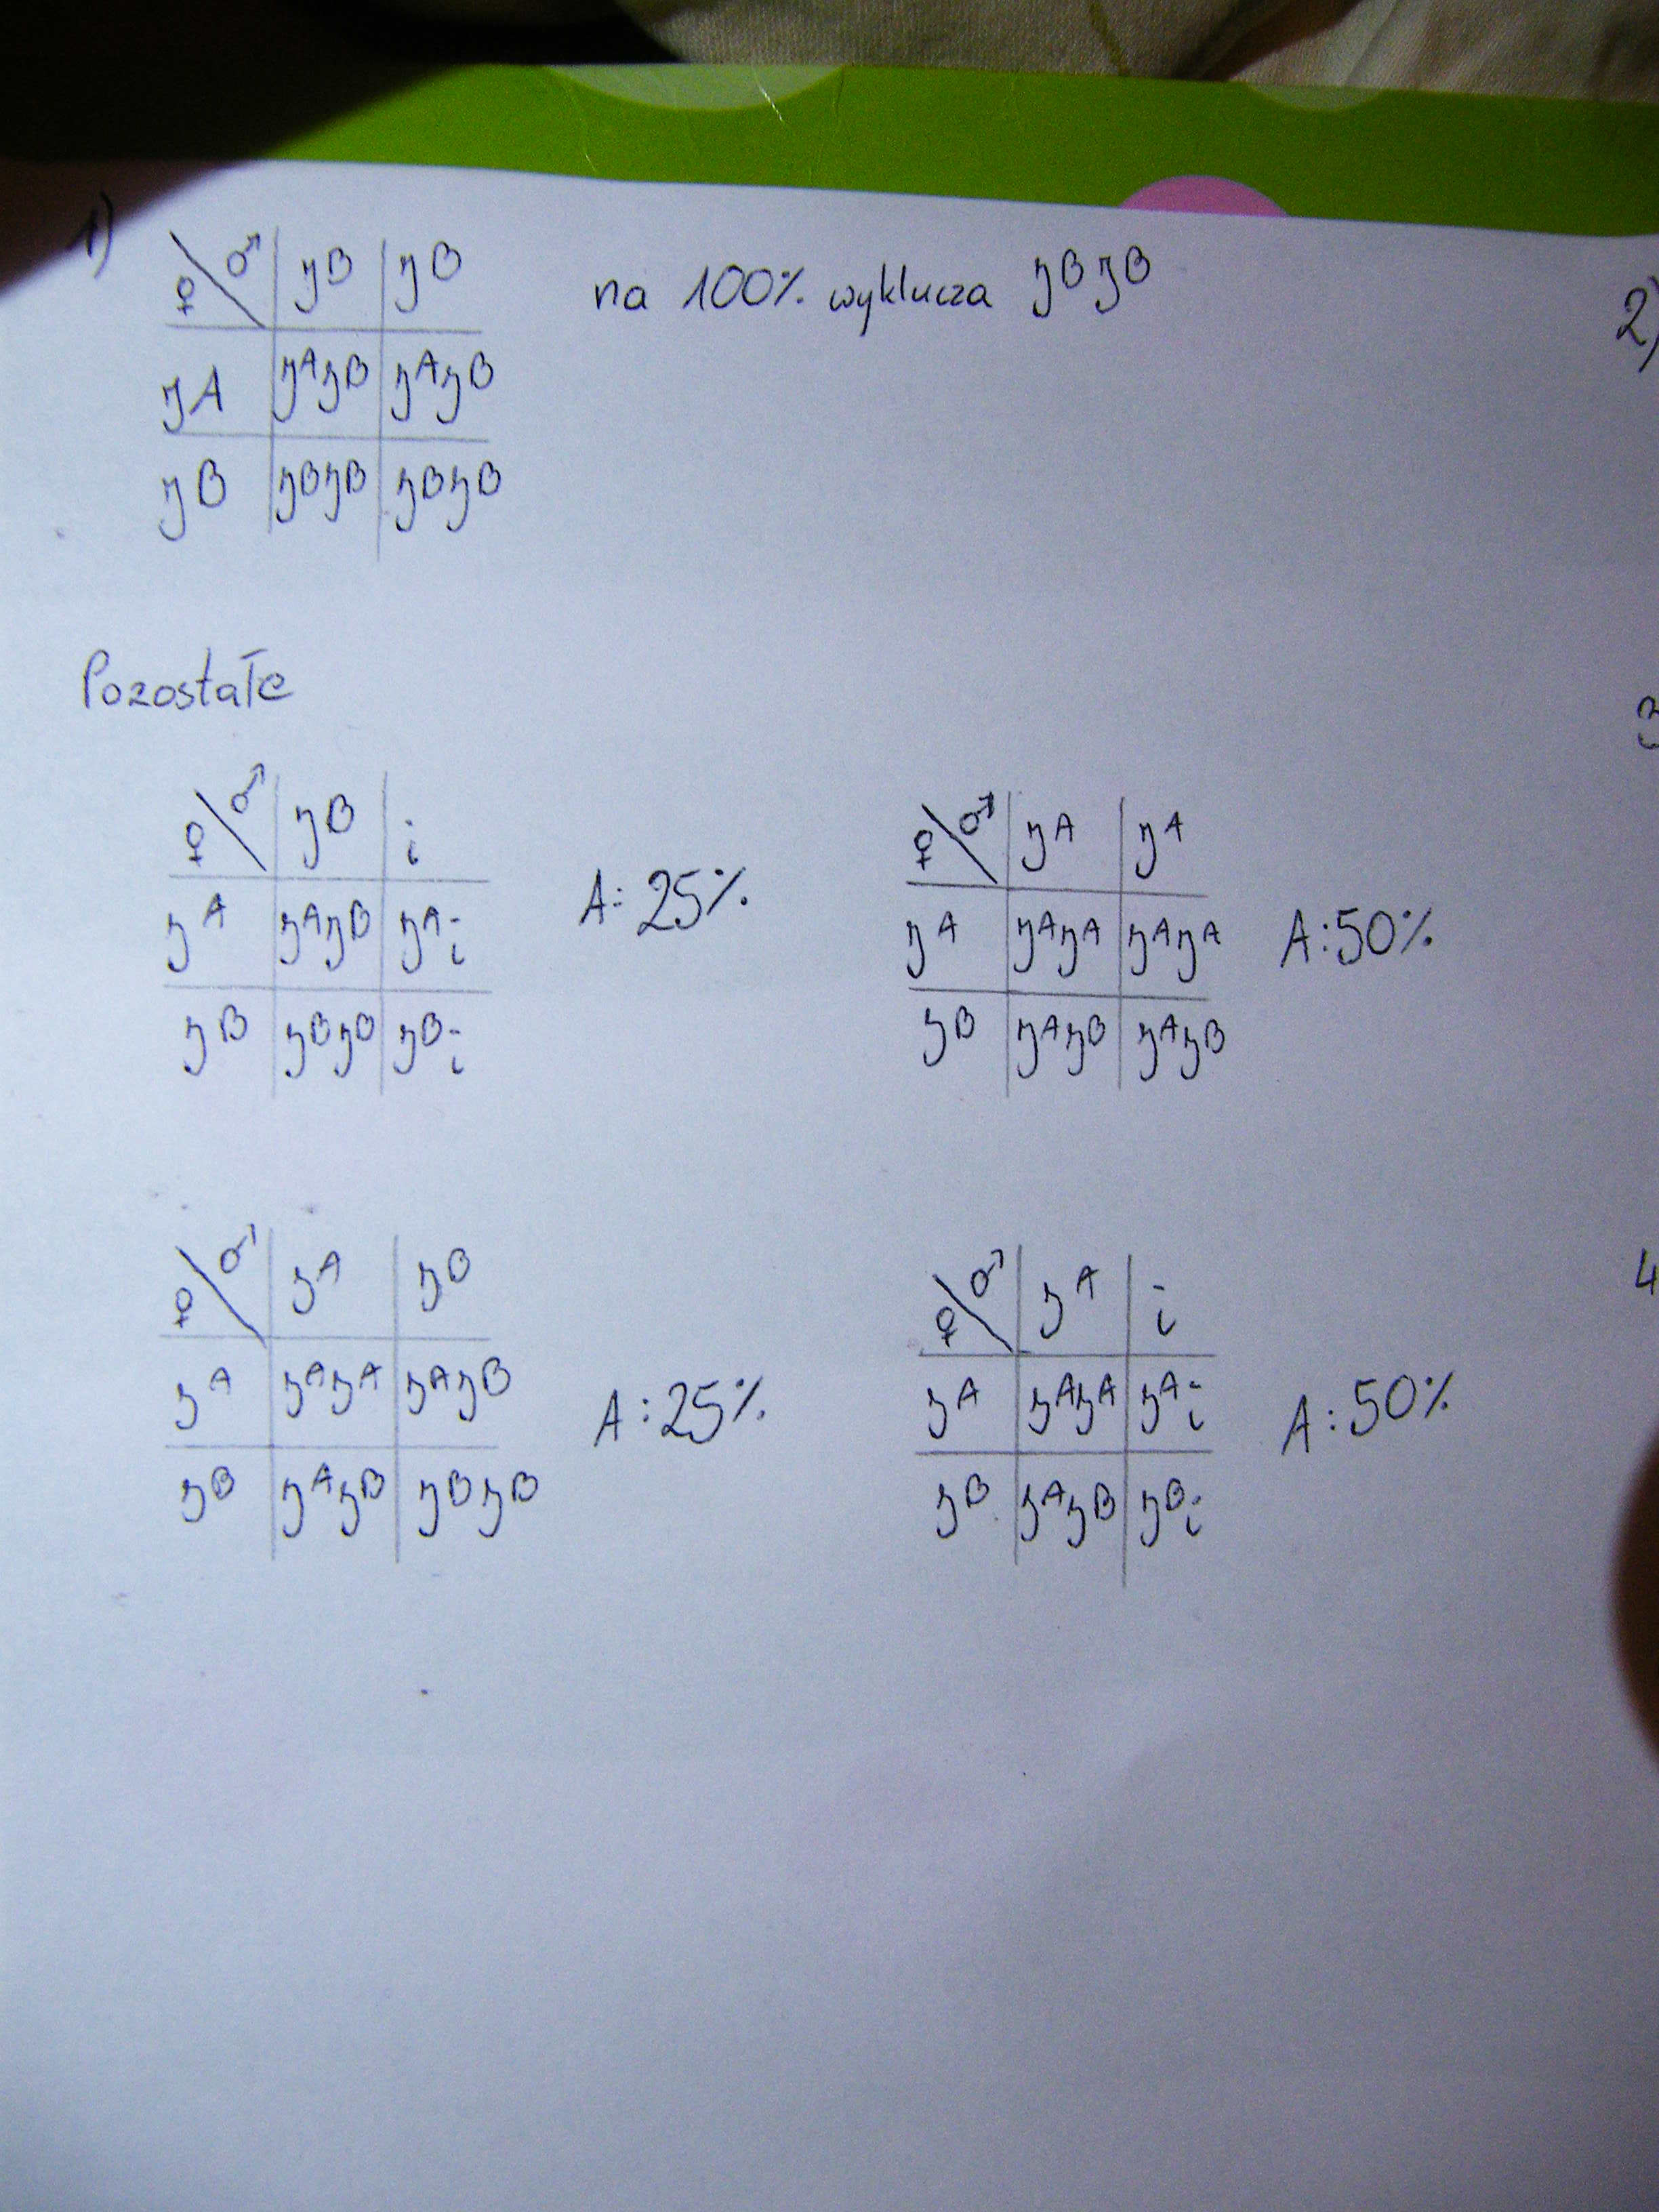 1)
♀ \ ♂ | JB | JB
JA | JAJB | JAJB
JB | JBJB | JBJB
na 100% wyklucza JBJB
2)
Pozostałe
3
♀ \ ♂ | JB | i
JA | JAJB | JAi
JB | JBJB | JBi
A: 25%
♀ \ ♂ | JA | JA
JA | JAJA | JAJA
JB | JAJB | JAJB
A: 50%
♀ \ ♂ | JA | JB
JA | JAJA | JAJB
JB | JAJB | JBJB
A: 25%
♀ \ ♂ | JA | i
JA | JAJA | JAi
JB | JAJB | JBi
A: 50%
4